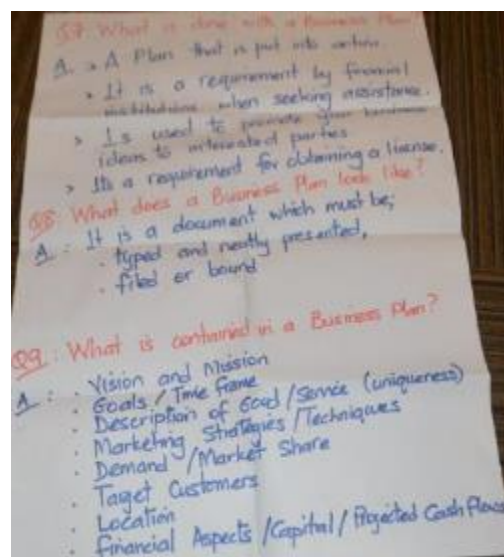 Q7. What is done with a Business Plan?
A. > A Plan that is put into action.
> It is a requirement by financial
institutions when seeking assistance.
> Is used to promote your business
ideas to interested parties
> Its a requirement for obtaining a license.
Q8 What does a Business Plan look like?
A : It is a document which must be;
. typed and neatly presented,
. filed or bound
Q9 : What is contained in a Business Plan?
A : . Vision and Mission
. Goals / Time frame
. Description of Good / Service (uniqueness)
. Marketing Strategies / Techniques
. Demand / Market Share
. Target Customers
. Location
. Financial Aspects / Capital / Projected Cash Flows